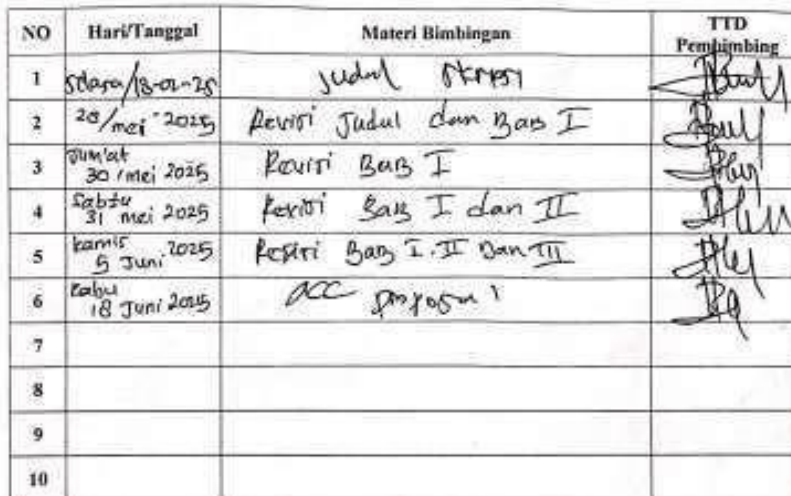 NO Hari/Tanggal Materi Bimbingan TTD Pembimbing
1 Selasa/18-02-25 Judul Skripsi
2 28/mei 2025 Revisi Judul dan Bab I
3 Jum'at 30 mei 2025 Revisi Bab I
4 Sabtu 31 mei 2025 Revisi Bab I dan II
5 kamis 5 Juni 2025 Revisi Bab I. II Dan III
6 Rabu 18 Juni 2025 ACC proposal
7
8
9
10